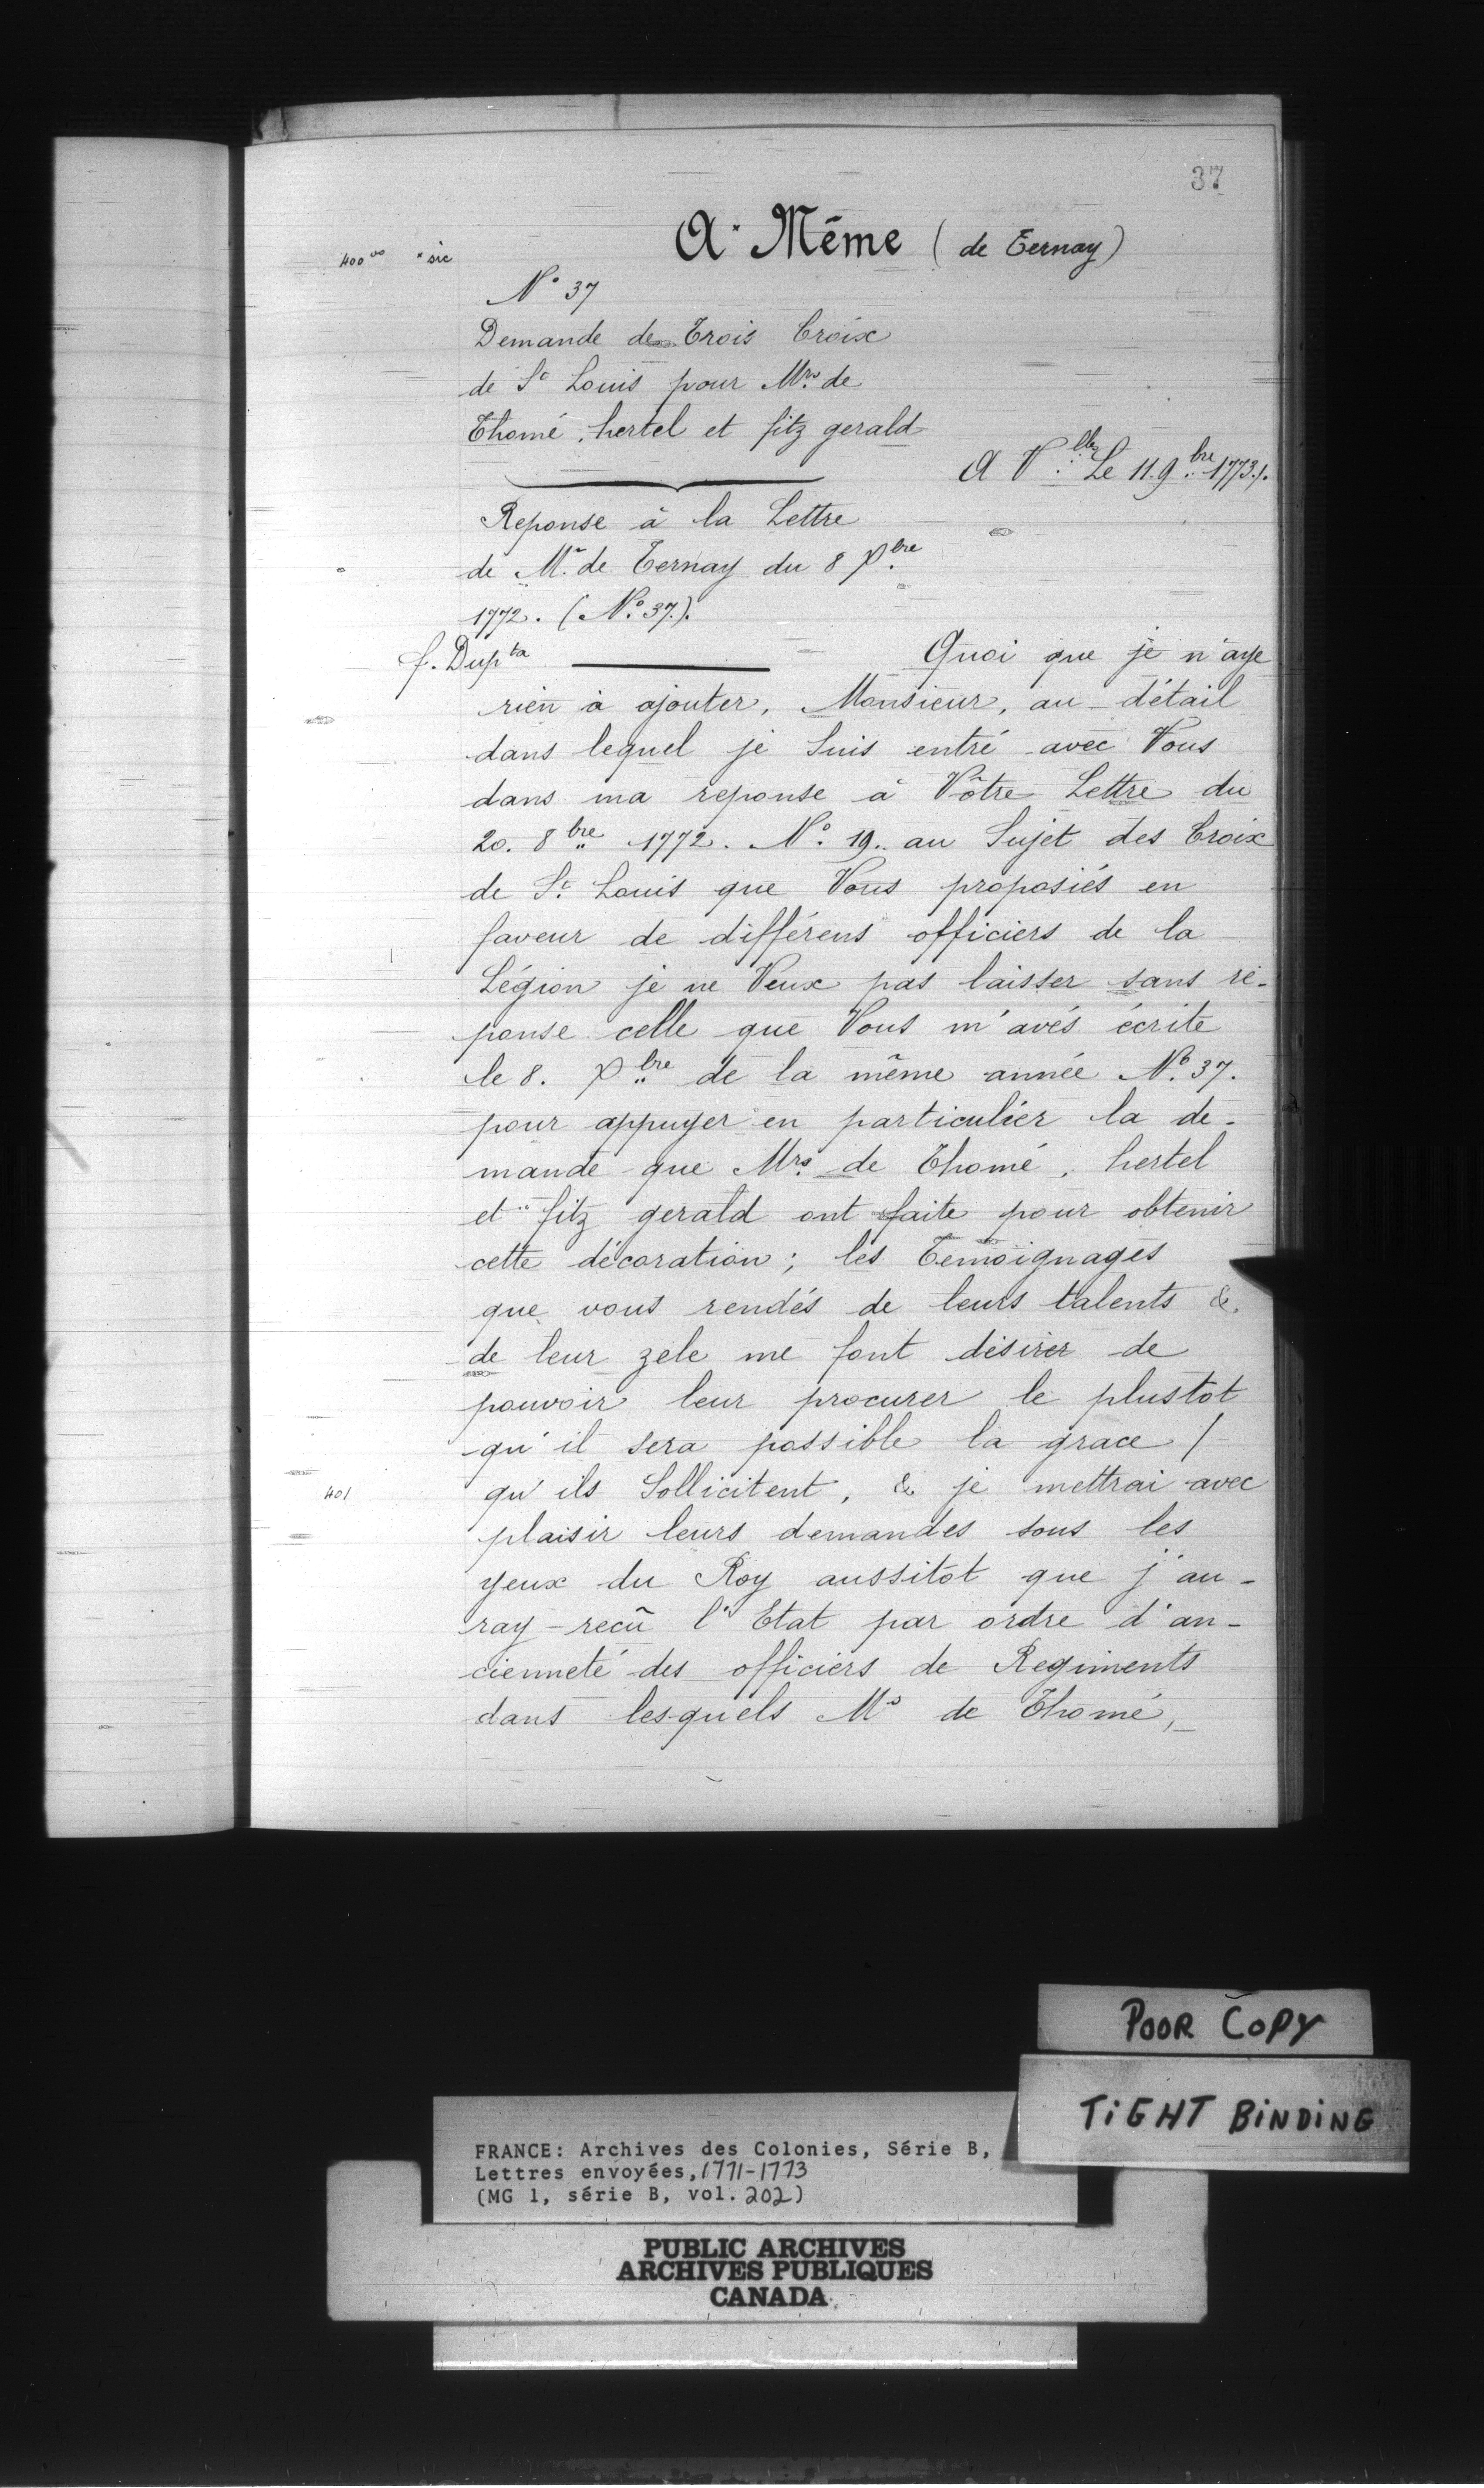 37
A * Même (de Ternay)
400 vo * sic
N° 37
Demande de Trois Croix
de St Louis pour Mrs. de
Thomé, hertel et fitz gerald
A V.lles Le 11. 9.bre 1773./.
Reponse à la Lettre
de Mr. de Ternay du 8 Xbre
1772. (N°. 37.).
f. Dupta
Quoi que je n'aye
rien à ajouter, Monsieur, au détail
dans lequel je Suis entré avec Vous
dans ma reponse à Vôtre Lettre du
20. 8bre 1772. N°. 19. au Sujet des Croix
de St. Louis que Vous proposiés en
faveur de différens officiers de la
Légion je ne Veux pas laisser sans ré-
ponse celle que Vous m'avés écrite
le 8. Xbre de la même année N°. 37.
pour appuyer en particulier la de-
mande que Mrs. de Thomé, hertel
et fitz gerald ont faite pour obtenir
cette décoration; les Temoignages
que vous rendés de leurs talents &
de leur zele me font désirer de
pouvoir leur procurer le plustot
qu'il sera possible la grace /
401
qu'ils Sollicitent, & je mettrai avec
plaisir leurs demandes sous les
yeux du Roy aussitôt que j'au-
ray reçû l'Etat par ordre d'an-
cienneté des officiers de Regiments
dans lesquels Ms de Thomé,
POOR COPY
TIGHT BINDING
FRANCE: Archives des Colonies, Série B,
Lettres envoyées, 1771-1773
(MG 1, série B, vol. 202)
PUBLIC ARCHIVES
ARCHIVES PUBLIQUES
CANADA